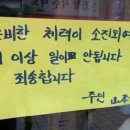 준비한 체력이 소진되어
더 이상 일이 안됩니다
죄송합니다
주인